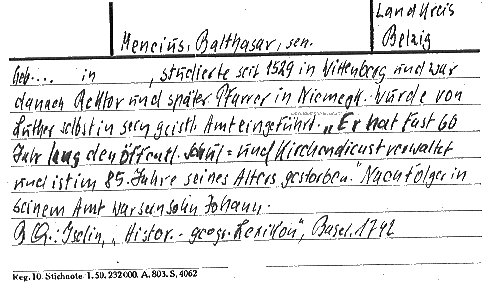 Landkreis
Mencius, Balthasar, sen. Belzig
Geb.... in , studierte seit 1529 in Wittenberg und war
danach Rektor und später Pfarrer in Niemegk. Wurde von
Luther selbst in sein geistl. Amt eingeführt. „Er hat fast 60
Jahr lang den öffentl. Schul- und Kirchendienst verwaltet
und ist im 85. Jahre seines Alters gestorben." Nachfolger in
seinem Amt war sein Sohn Johann.
B Q.: Iselin, „Histor.-geogr. Lexikon", Basel. 1742
Reg. 10. Stichnote 1. 50. 232000. A. 803. S. 4062